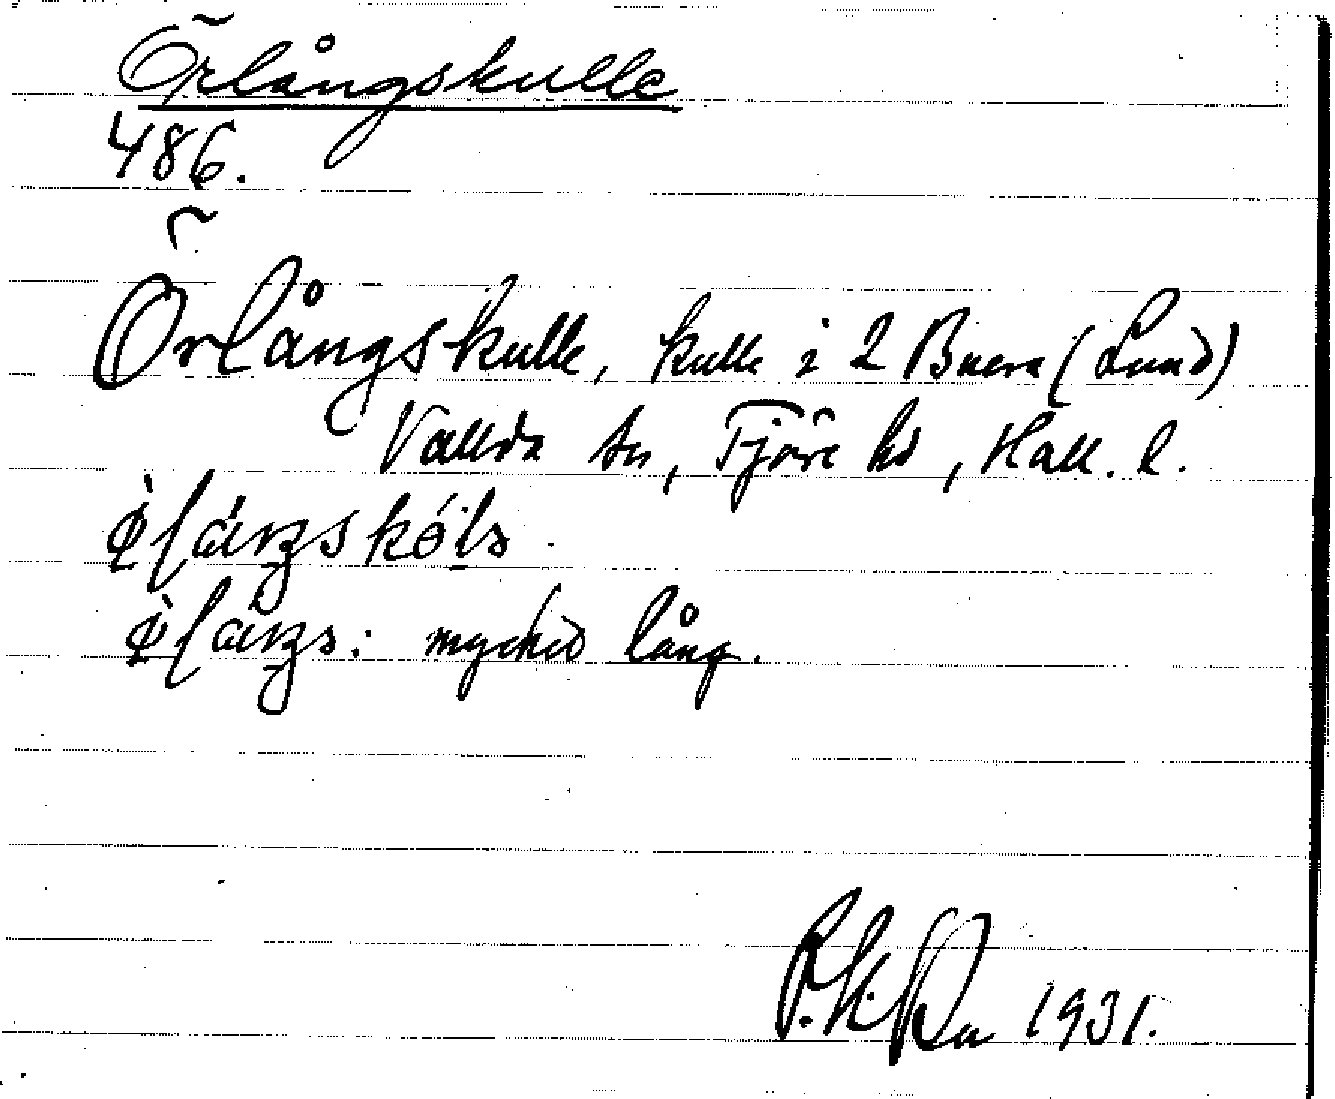 Örlångskulle
486.
Örlångskulle, kulle i 2 Buera (Lund)
Vallda sn, Fjäre hd, Hall. l.
: mycket lång.
1931.